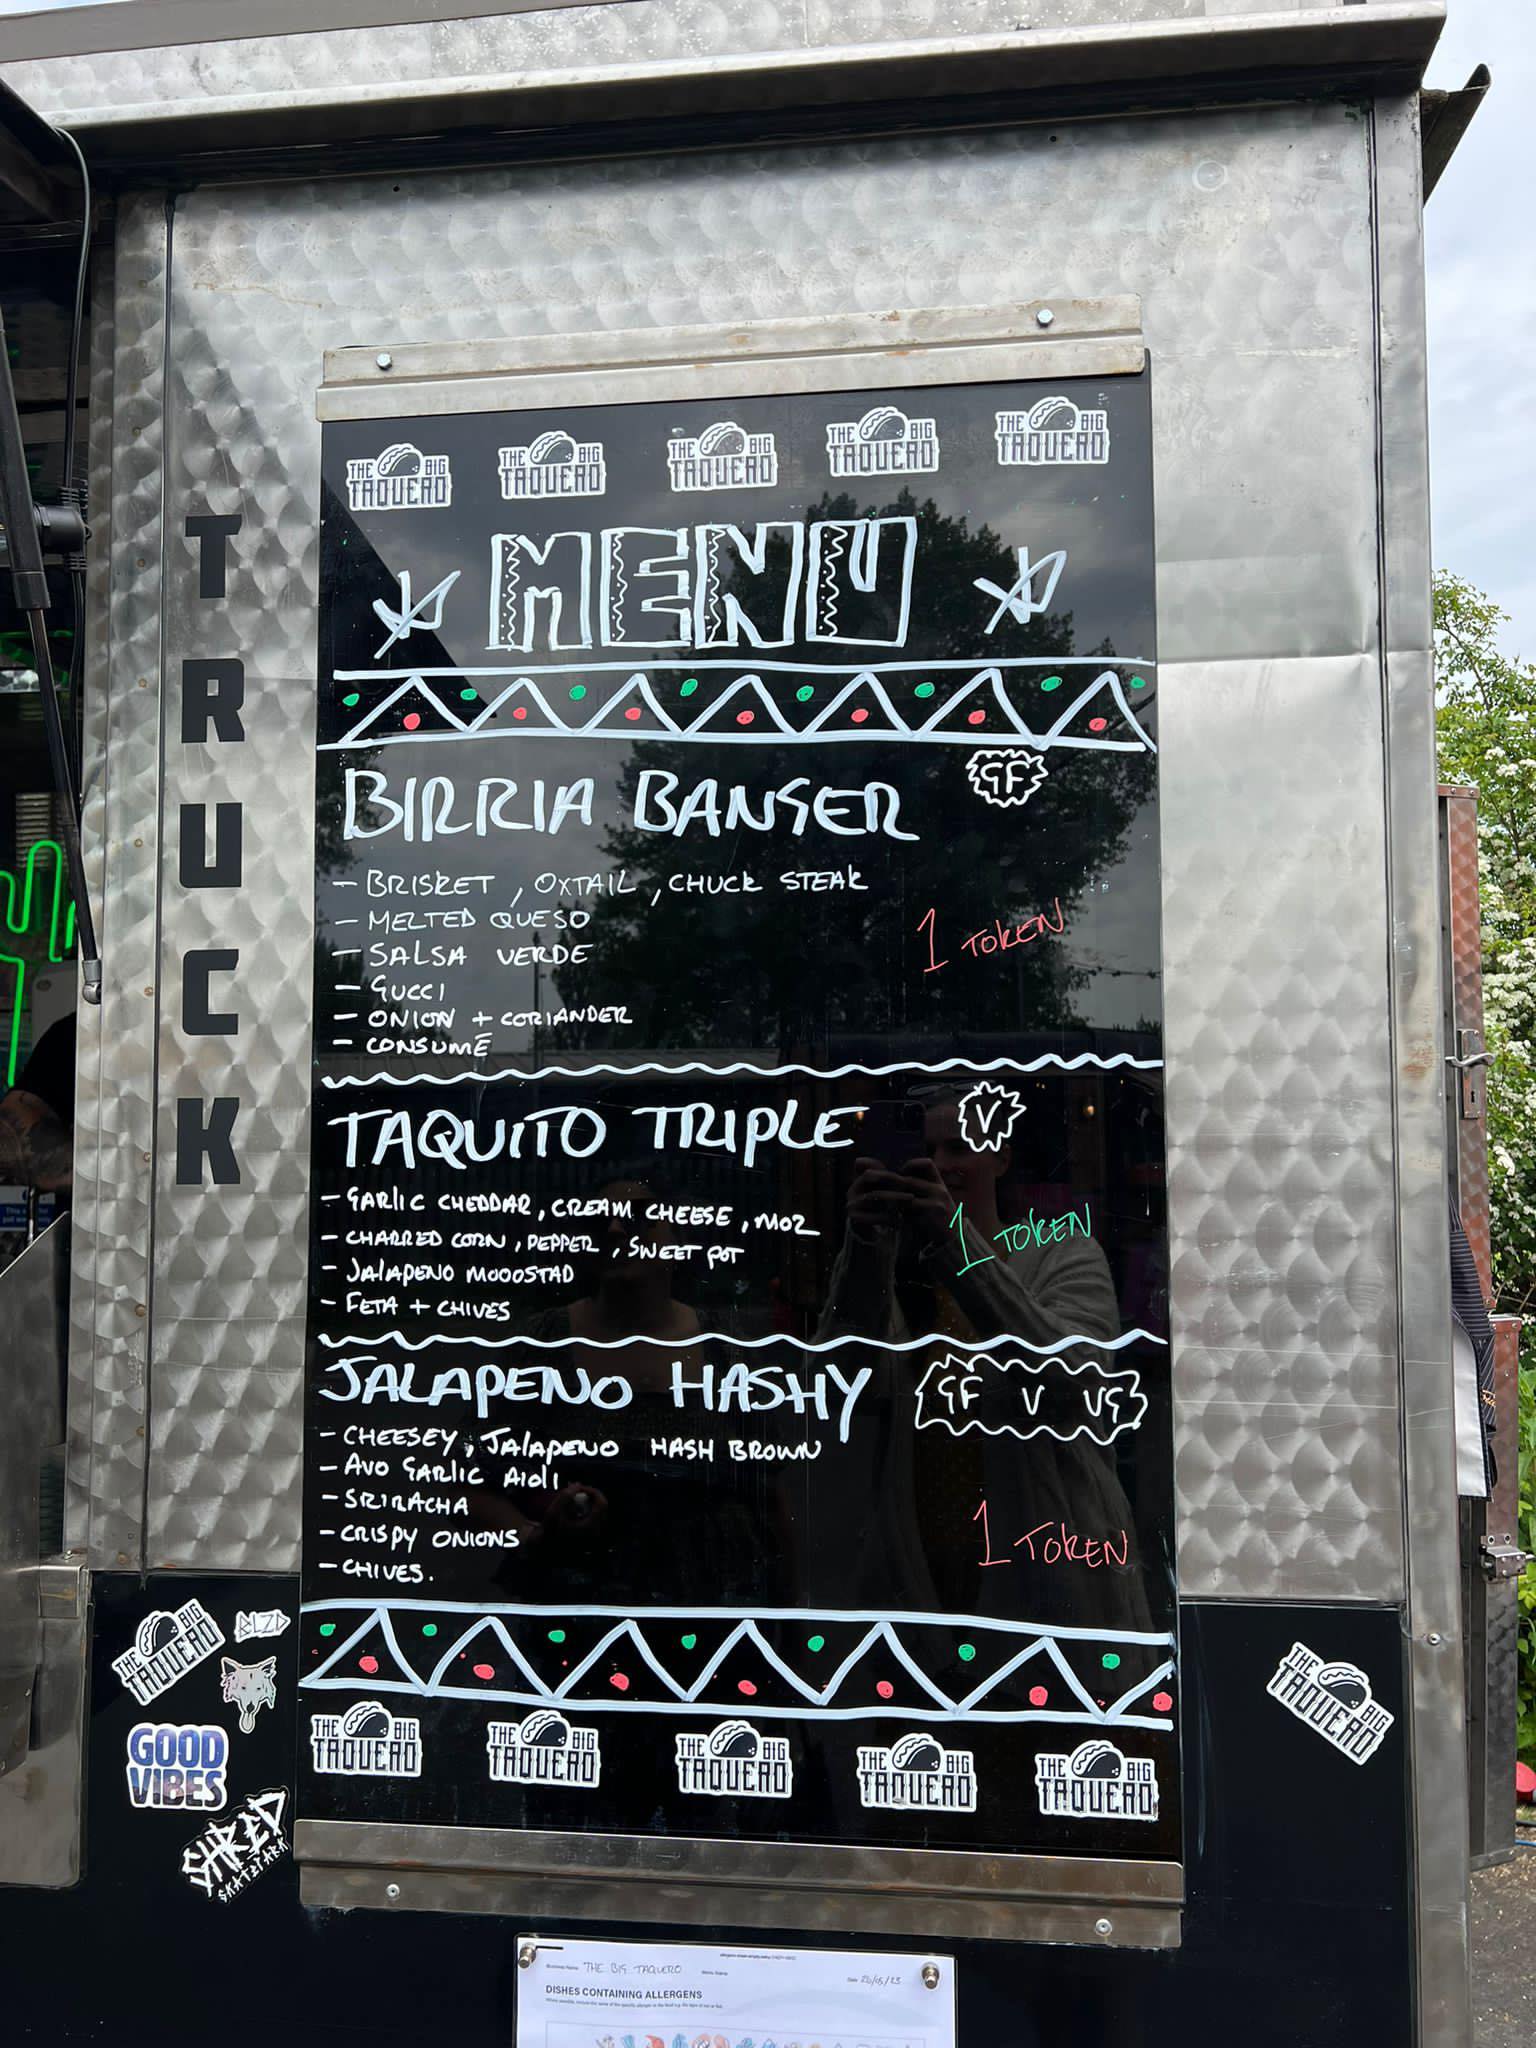 THE BIG TAQUERO
THE BIG TAQUERO
THE BIG TAQUERO
THE BIG TAQUERO
THE BIG TAQUERO
MENU
TRUCK
BIRRIA BANGER GF
- BRISKET, OXTAIL, CHUCK STEAK
- MELTED QUESO
- SALSA VERDE
- GUCCI
- ONION + CORIANDER
- CONSUMÉ
1 TOKEN
TAQUITO TRIPLE V
- GARLIC CHEDDAR, CREAM CHEESE, MOZ
- CHARRED CORN, PEPPER, SWEET POT
- JALAPENO MOOOSTAD
- FETA + CHIVES
1 TOKEN
JALAPENO HASHY GF V VG
- CHEESEY, JALAPENO HASH BROWN
- AVO GARLIC AIOLI
- SRIRACHA
- CRISPY ONIONS
- CHIVES.
1 TOKEN
THE BIG TAQUERO
THE BIG TAQUERO
THE BIG TAQUERO
THE BIG TAQUERO
THE BIG TAQUERO
THE BIG TAQUERO
BLZD
GOOD
VIBES
SHRED
SKATEPARK
THE BIG TAQUERO
Business Name THE BIG TAQUERO Menu Name Date 26/05/23
DISHES CONTAINING ALLERGENS